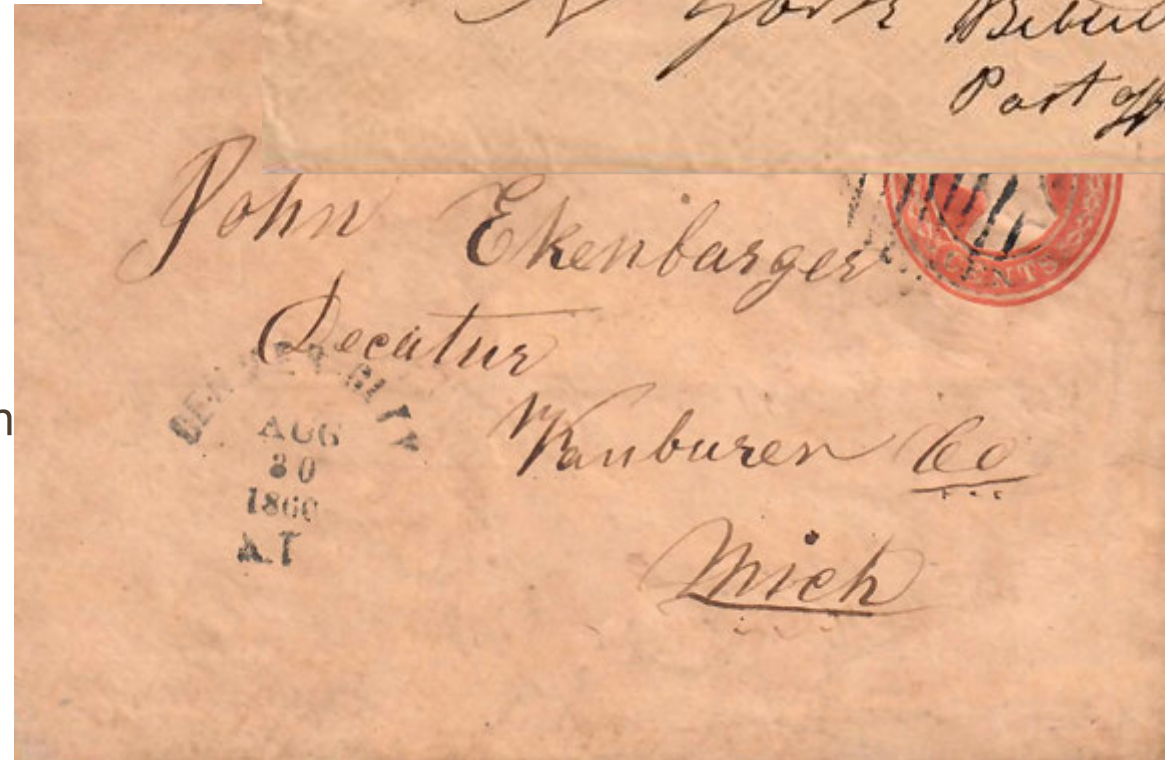 York
Post off
CENTS
John Ekenbarger
Decatur
Vanburen Co
Mich
DENVER CITY
AUG
30
1860
K.T
n